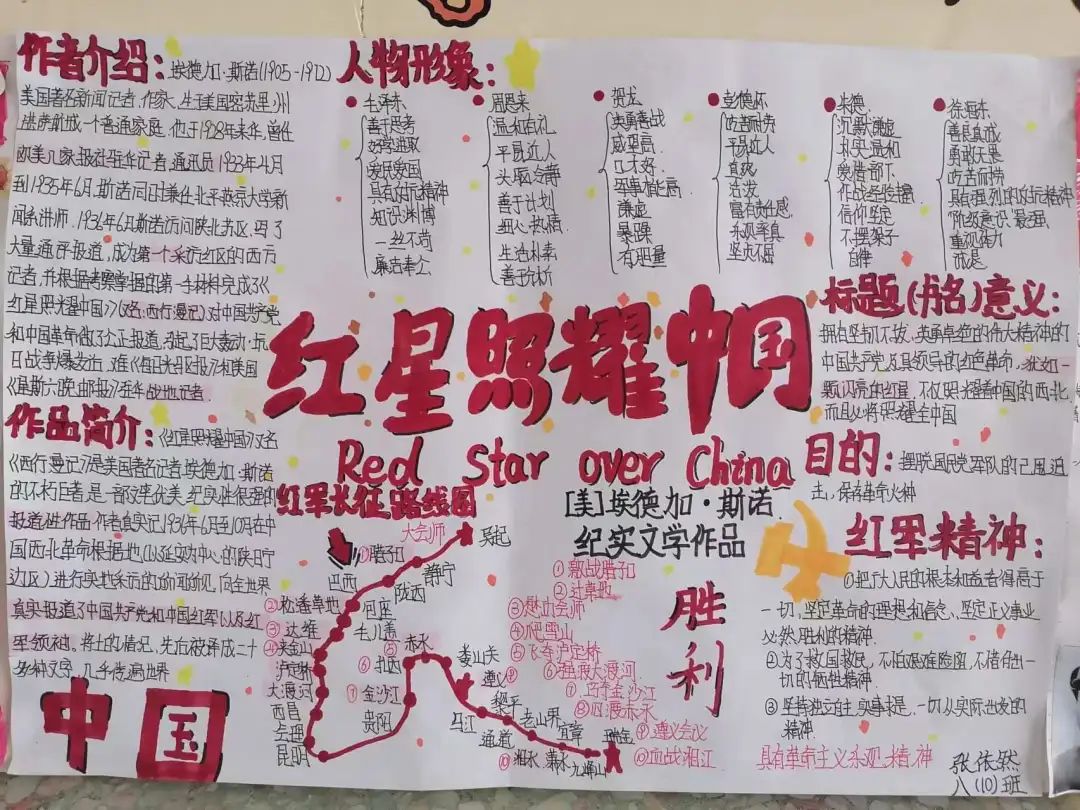 作者介绍：埃德加·斯诺(1905-1972)
美国著名新闻记者，作家，生于美国密苏里州
堪萨斯城一个普通家庭，他于1928年来华，曾任
欧美几家报社驻华记者，通讯员1933年4月
到1935年6月，斯诺同时兼任北平燕京大学新
闻系讲师．1936年6月斯诺访问陕北苏区，写了
大量通讯报道，成为第一个采访红区的西方
记者，并根据考察掌握的第一手材料完成了《
红星照耀中国》(又名：西行漫记)对中国共产党
和中国革命做了公正报道，引起了巨大轰动．抗
日战争爆发后，任《每日先驱报》和美国
《星期六晚邮报》驻华战地记者.
作品简介：《红星照耀中国》又名
《西行漫记》是美国著名记者埃德加·斯诺
的不朽巨著，是一部文笔优美，纪实性很强的
报道性作品．作者真实记1936年6月至10月在中
国西北革命根据地(以延安为中心的陕甘宁
边区)进行实地采访的所闻所见，向全世界
真实报道了中国共产党和中国红军以及红
军领袖，将士的情况．先后被译成二十
多种文字，几乎传遍世界
中国
人物形象：
毛泽东
善于思考
好学进取
爱民爱国
具有好玩精神
知识渊博
一丝不苟
廉洁奉公
周恩来
温和有礼
平易近人
头脑冷静
善于计划
细心·热情
生活朴素
善于分析
贺龙
英勇善战
威望高
口才好
军事才能高
谦虚
暴躁
有胆量
彭德怀
吃苦耐劳
平易近人
直爽
活泼
富有责任感
乐观率真
坚贞不屈
朱德
沉默谦虚
朴实温和
爱惜部下
作战经验丰富
信仰坚定
不摆架子
自律
徐海东
善良真诚
勇敢无畏
吃苦耐劳
具有强烈的反抗精神
阶级意识最强
重视体力
诚恳
红星照耀中国
Red Star over China
[美]埃德加·斯诺
纪实文学作品
标题(书名)意义：
拥有坚韧不拔、英勇卓绝的伟大精神的
中国共产党及其领导的红色革命，犹如一
颗闪亮的红星，不仅照耀着中国的西北，
而且必将照耀全中国
目的：摆脱国民党军队的包围追
击，保存革命火种
红军长征路线图
大会师
吴起
①腊子口
静宁
巴西
陇西
②松潘草地
包座
③达维
毛儿盖
④夹金山
⑥扎西
泸定桥
赤水
娄山关
大渡河
⑦金沙江
遵义
西昌
贵阳
乌江
黎平
会理
通道
老山界
宜章
昆明
⑩湘水
潇水
九峰山
瑞金
①激战腊子口
②过草地
③懋功会师
④爬雪山
⑤飞夺泸定桥
⑥强渡大渡河
⑦巧渡金沙江
⑧四渡赤水
⑨遵义会议
⑩血战湘江
胜利
红军精神：
①把广大人民的根本利益看得高于
一切，坚定革命的理想和信念，坚定正义事业
必然胜利的精神.
②为了救国救民，不怕艰难险阻，不惜付出一
切的牺牲精神.
③坚持独立自主，实事求是，一切从实际出发的
精神.
具有革命主义乐观精神
张依然
八(10)班